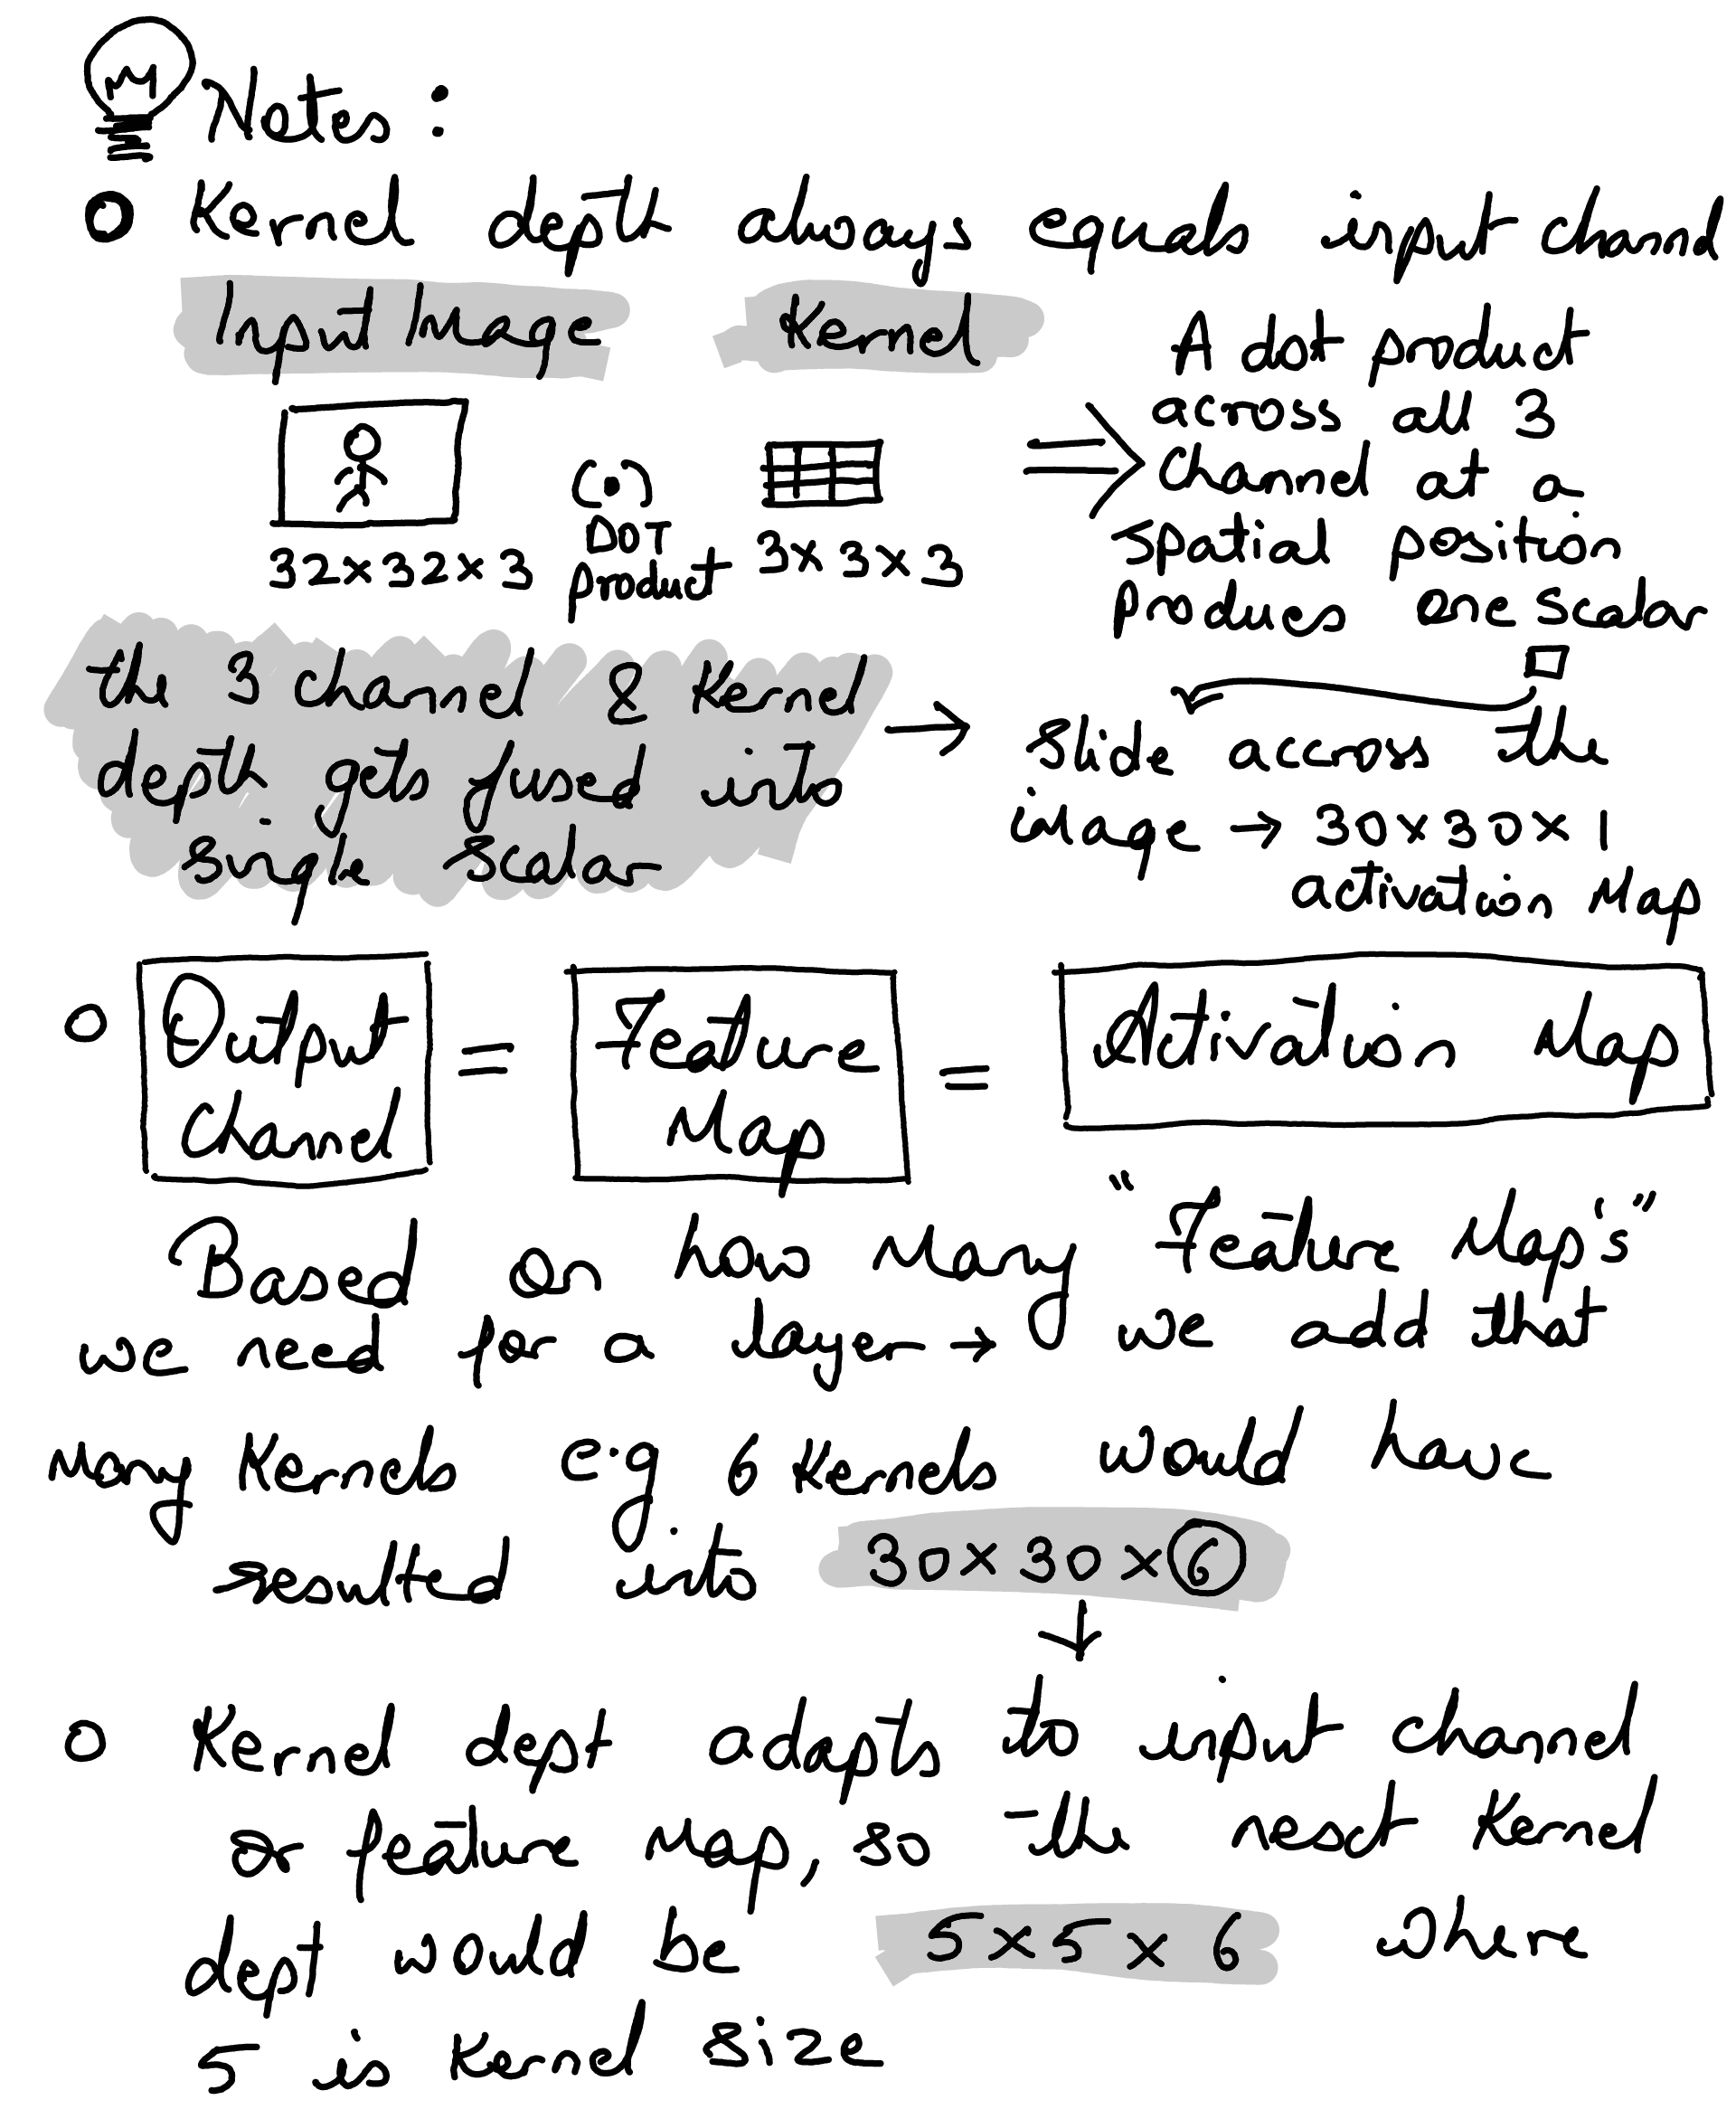 M
Notes :
Kernel depth always equals input channel
Input Image
Kernel
(•)
DOT
product
32×32×3
3×3×3
A dot product
across all 3
channel at a
spatial position
produces one scalar
the 3 channel & Kernel
depth gets fused into
single scalar
→ slide accross the
image → 30×30×1
activation Map
Output
Channel
=
Feature
Map
=
Activation Map
Based on how many "Feature Map's"
we need for a layer → we add that
many Kernels e.g 6 Kernels would have
resulted into 30×30×6
Kernel dept adapts to input channel
or feature map, so the next Kernel
dept would be 5×5×6 where
5 is Kernel size